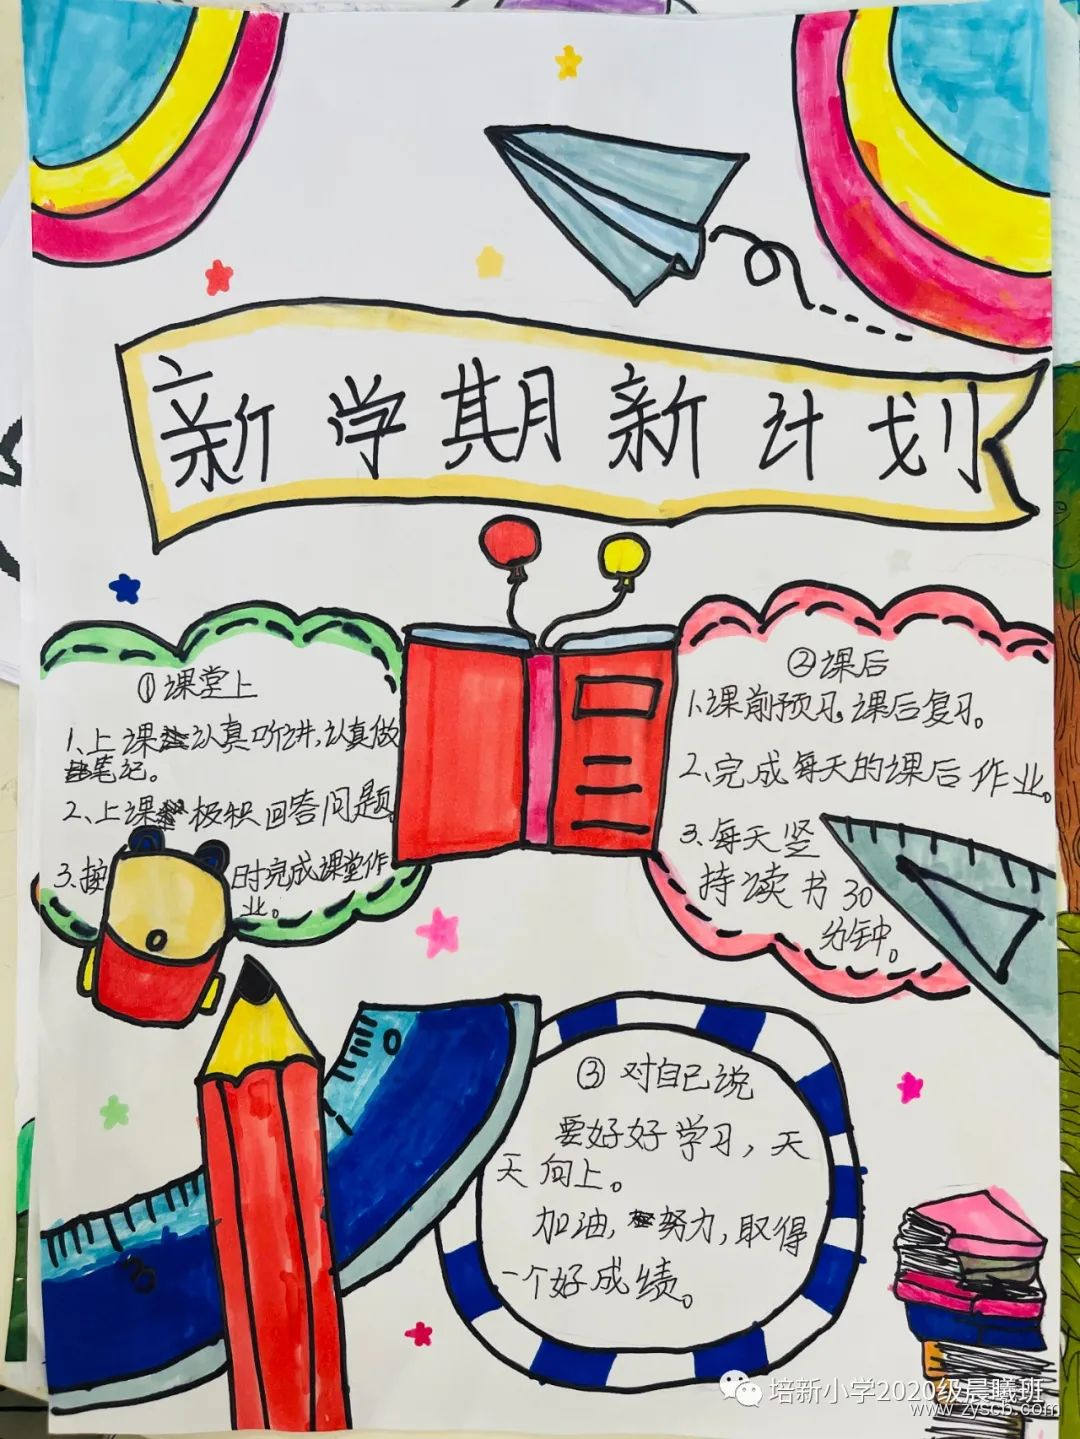 新学期新计划
①课堂上
1、上课认真听讲,认真做
笔记。
2、上课极积回答问题。
3、按时完成课堂作
业。
②课后
1、课前预习,课后复习。
2、完成每天的课后作业。
3、每天竖
持读书30
分钟。
③对自己说
要好好学习,天
天向上。
加油,努力,取得
一个好成绩。
培新小学2020级晨曦班
www.zyscb.com